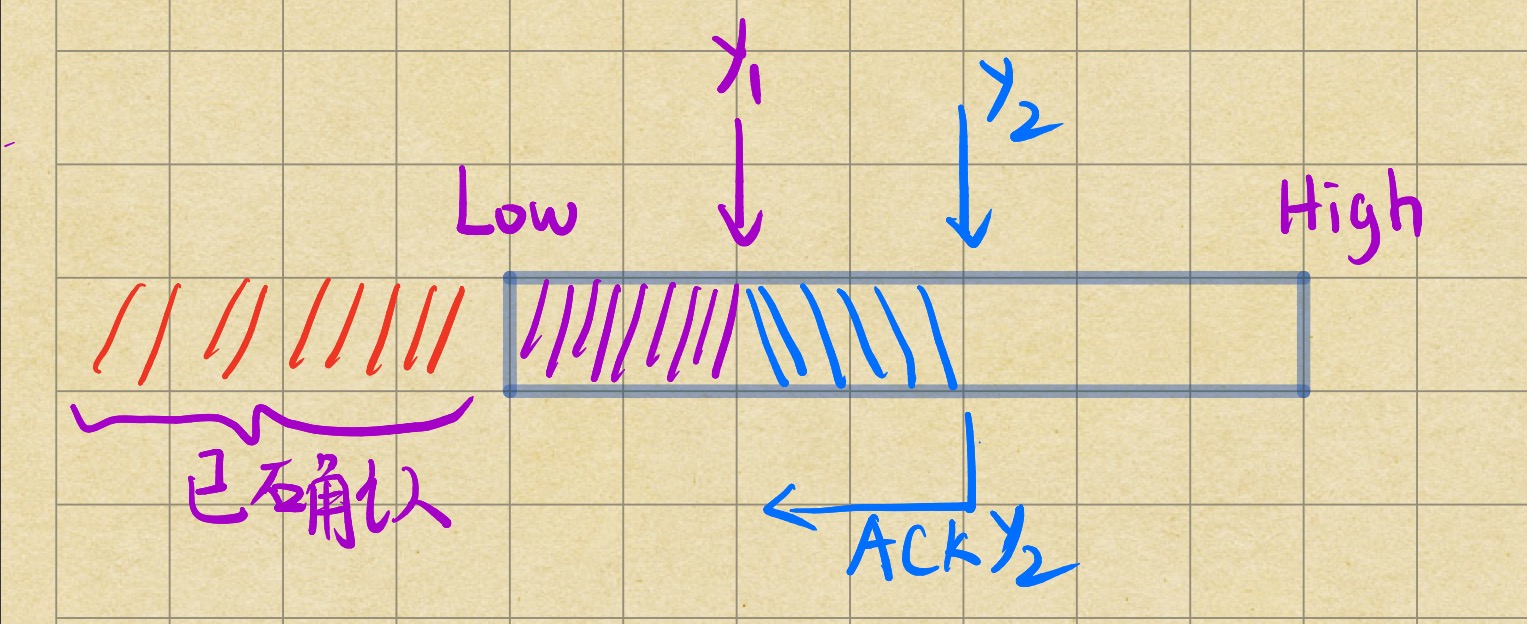 y₁
y₂
Low
High
已确认
ACK y₂